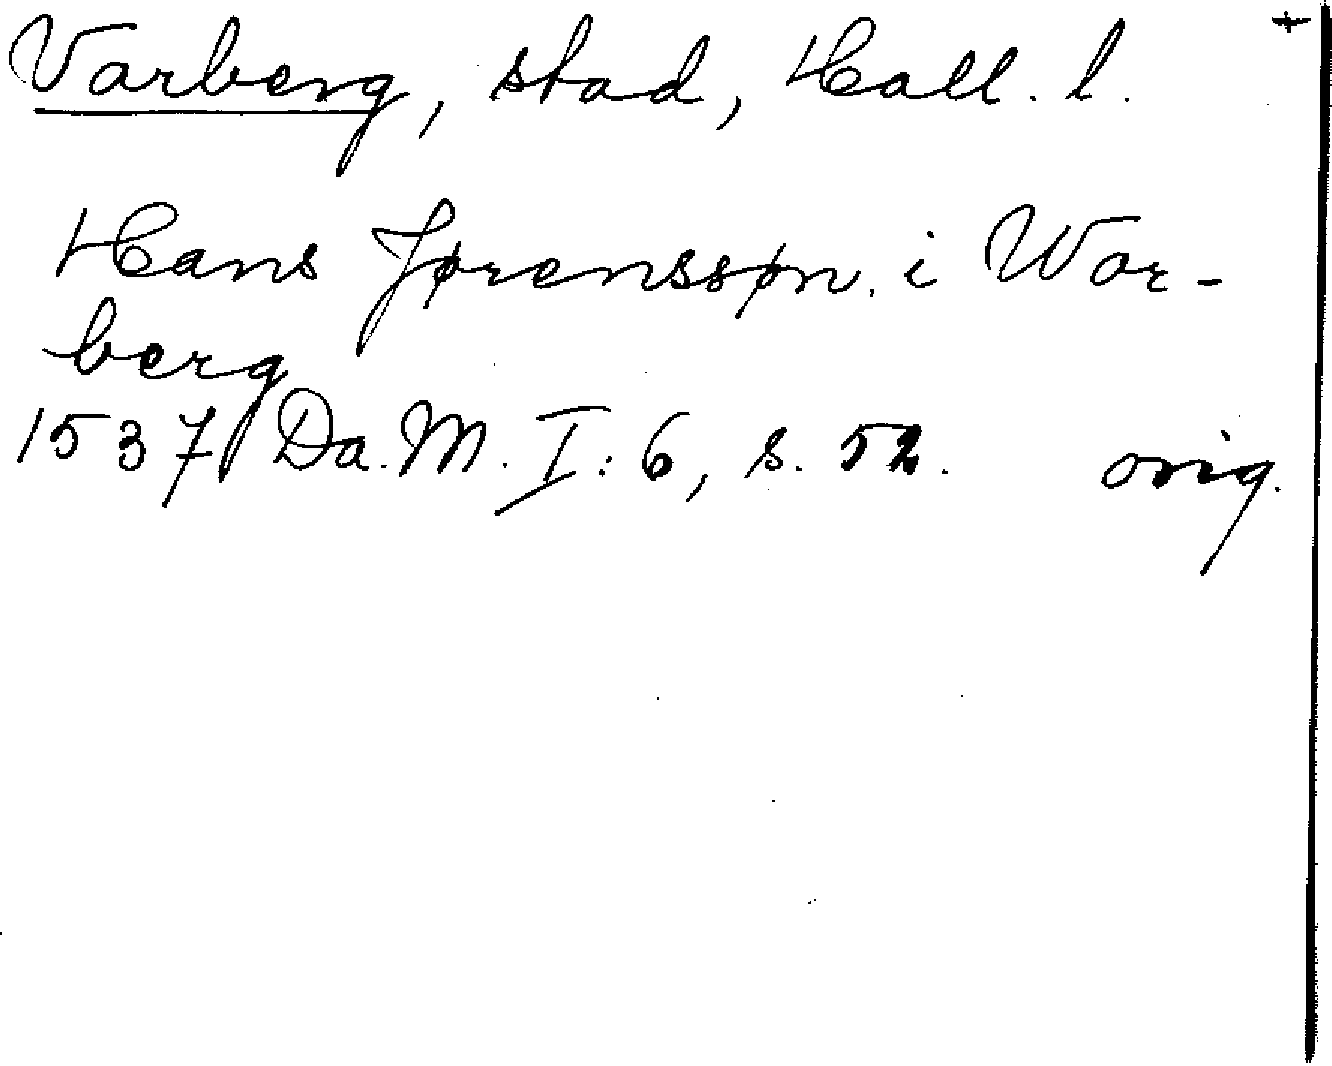 Varberg, stad, Hall. l. +
Hans Jørenssøn i War-
berg
1537 Da. M. I: 6, s. 52. orig.